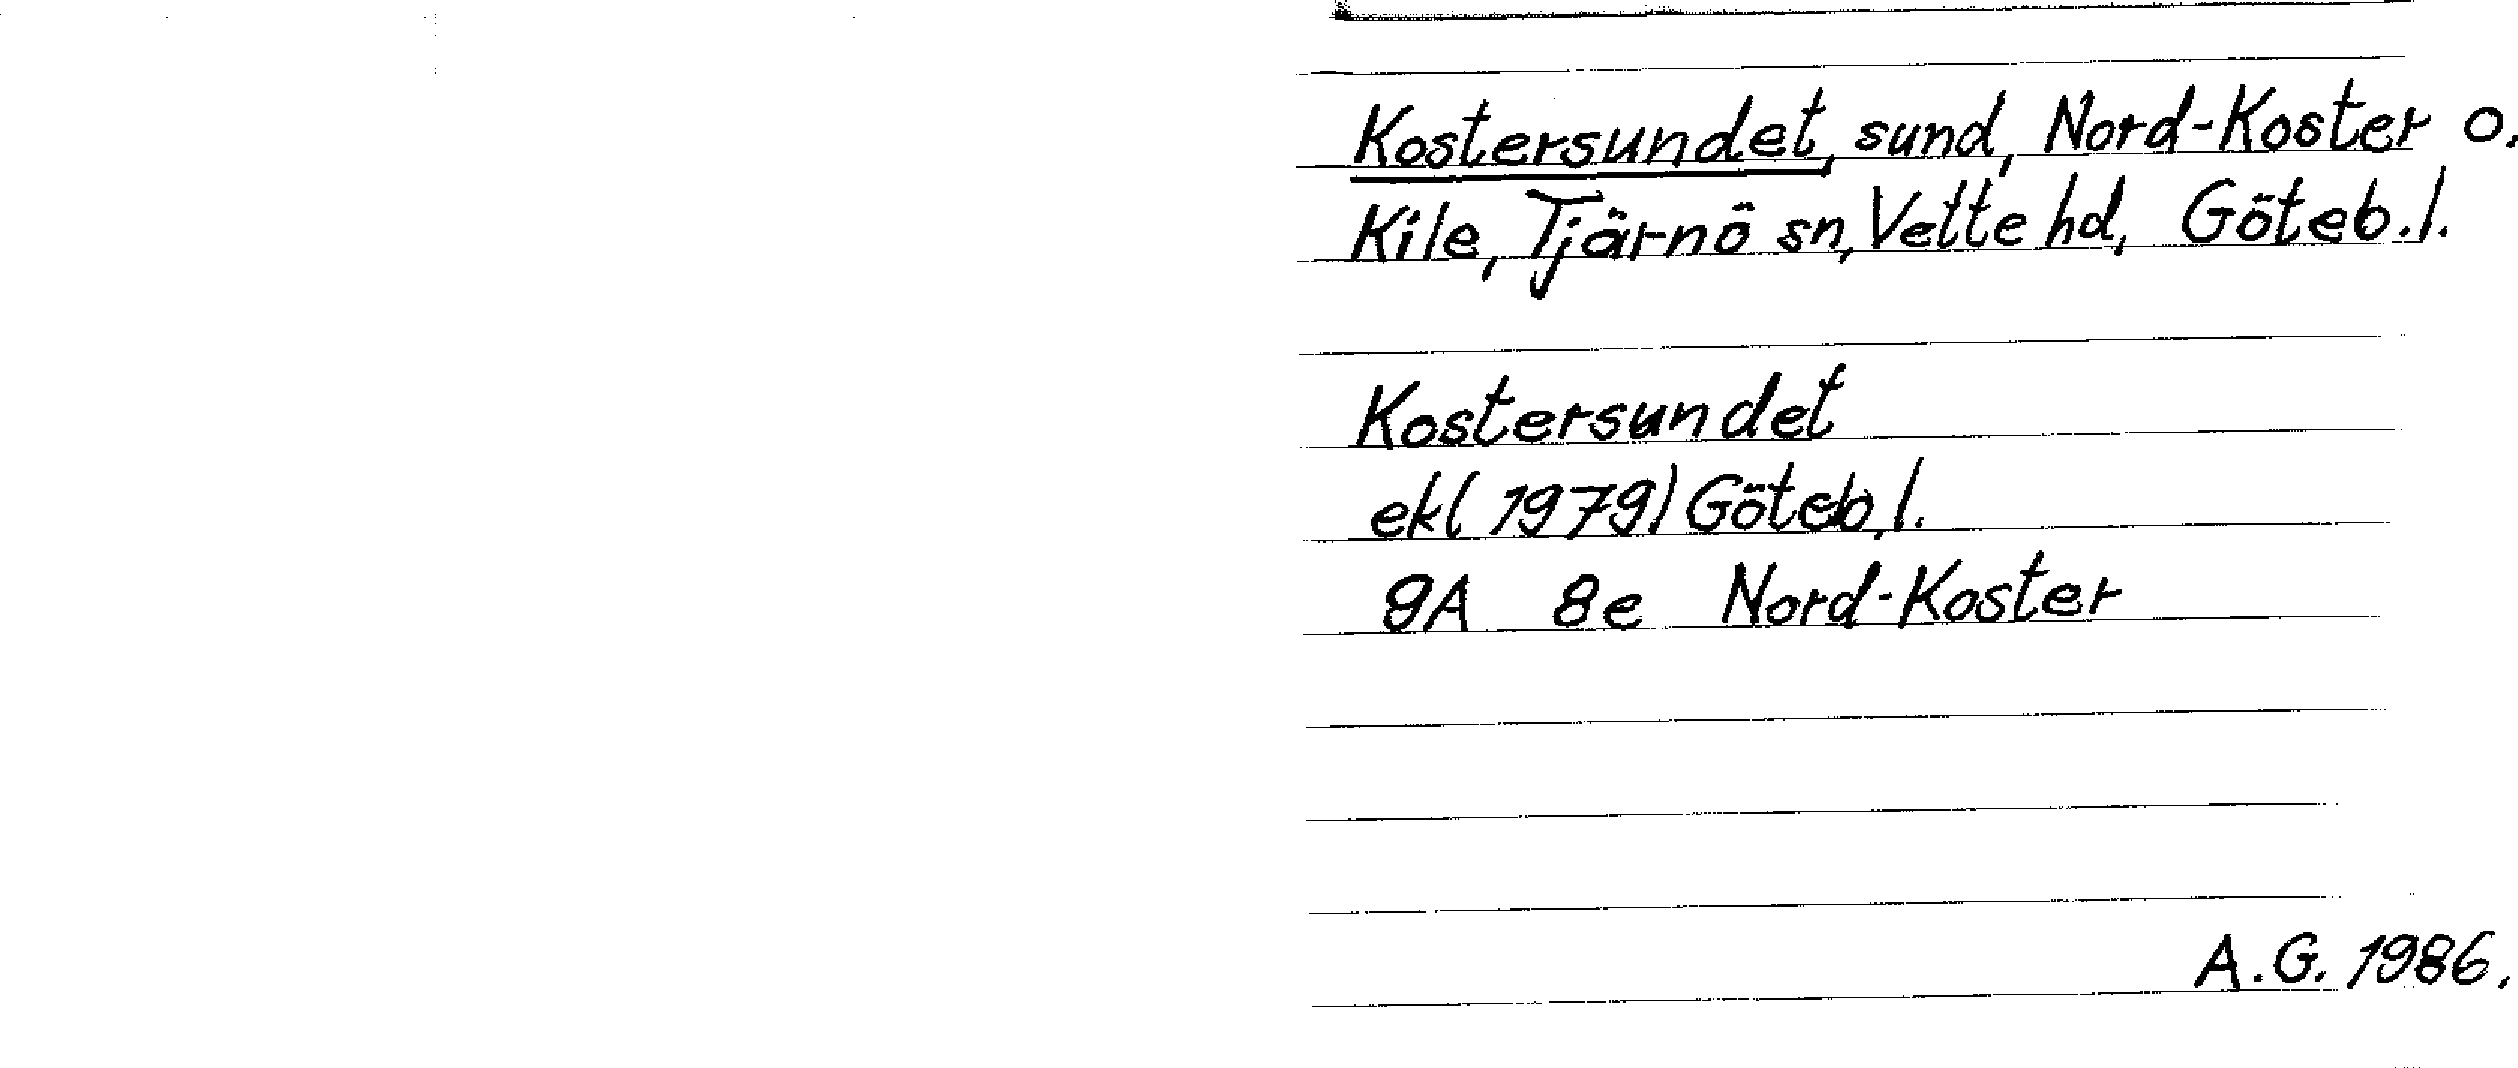 Kostersundet, sund, Nord-Koster o.
Kile, Tjärnö sn, Vette hd, Göteb.l.
Kostersundet
ek(1979) Göteb.l.
9A 8e Nord-Koster
A.G. 1986.